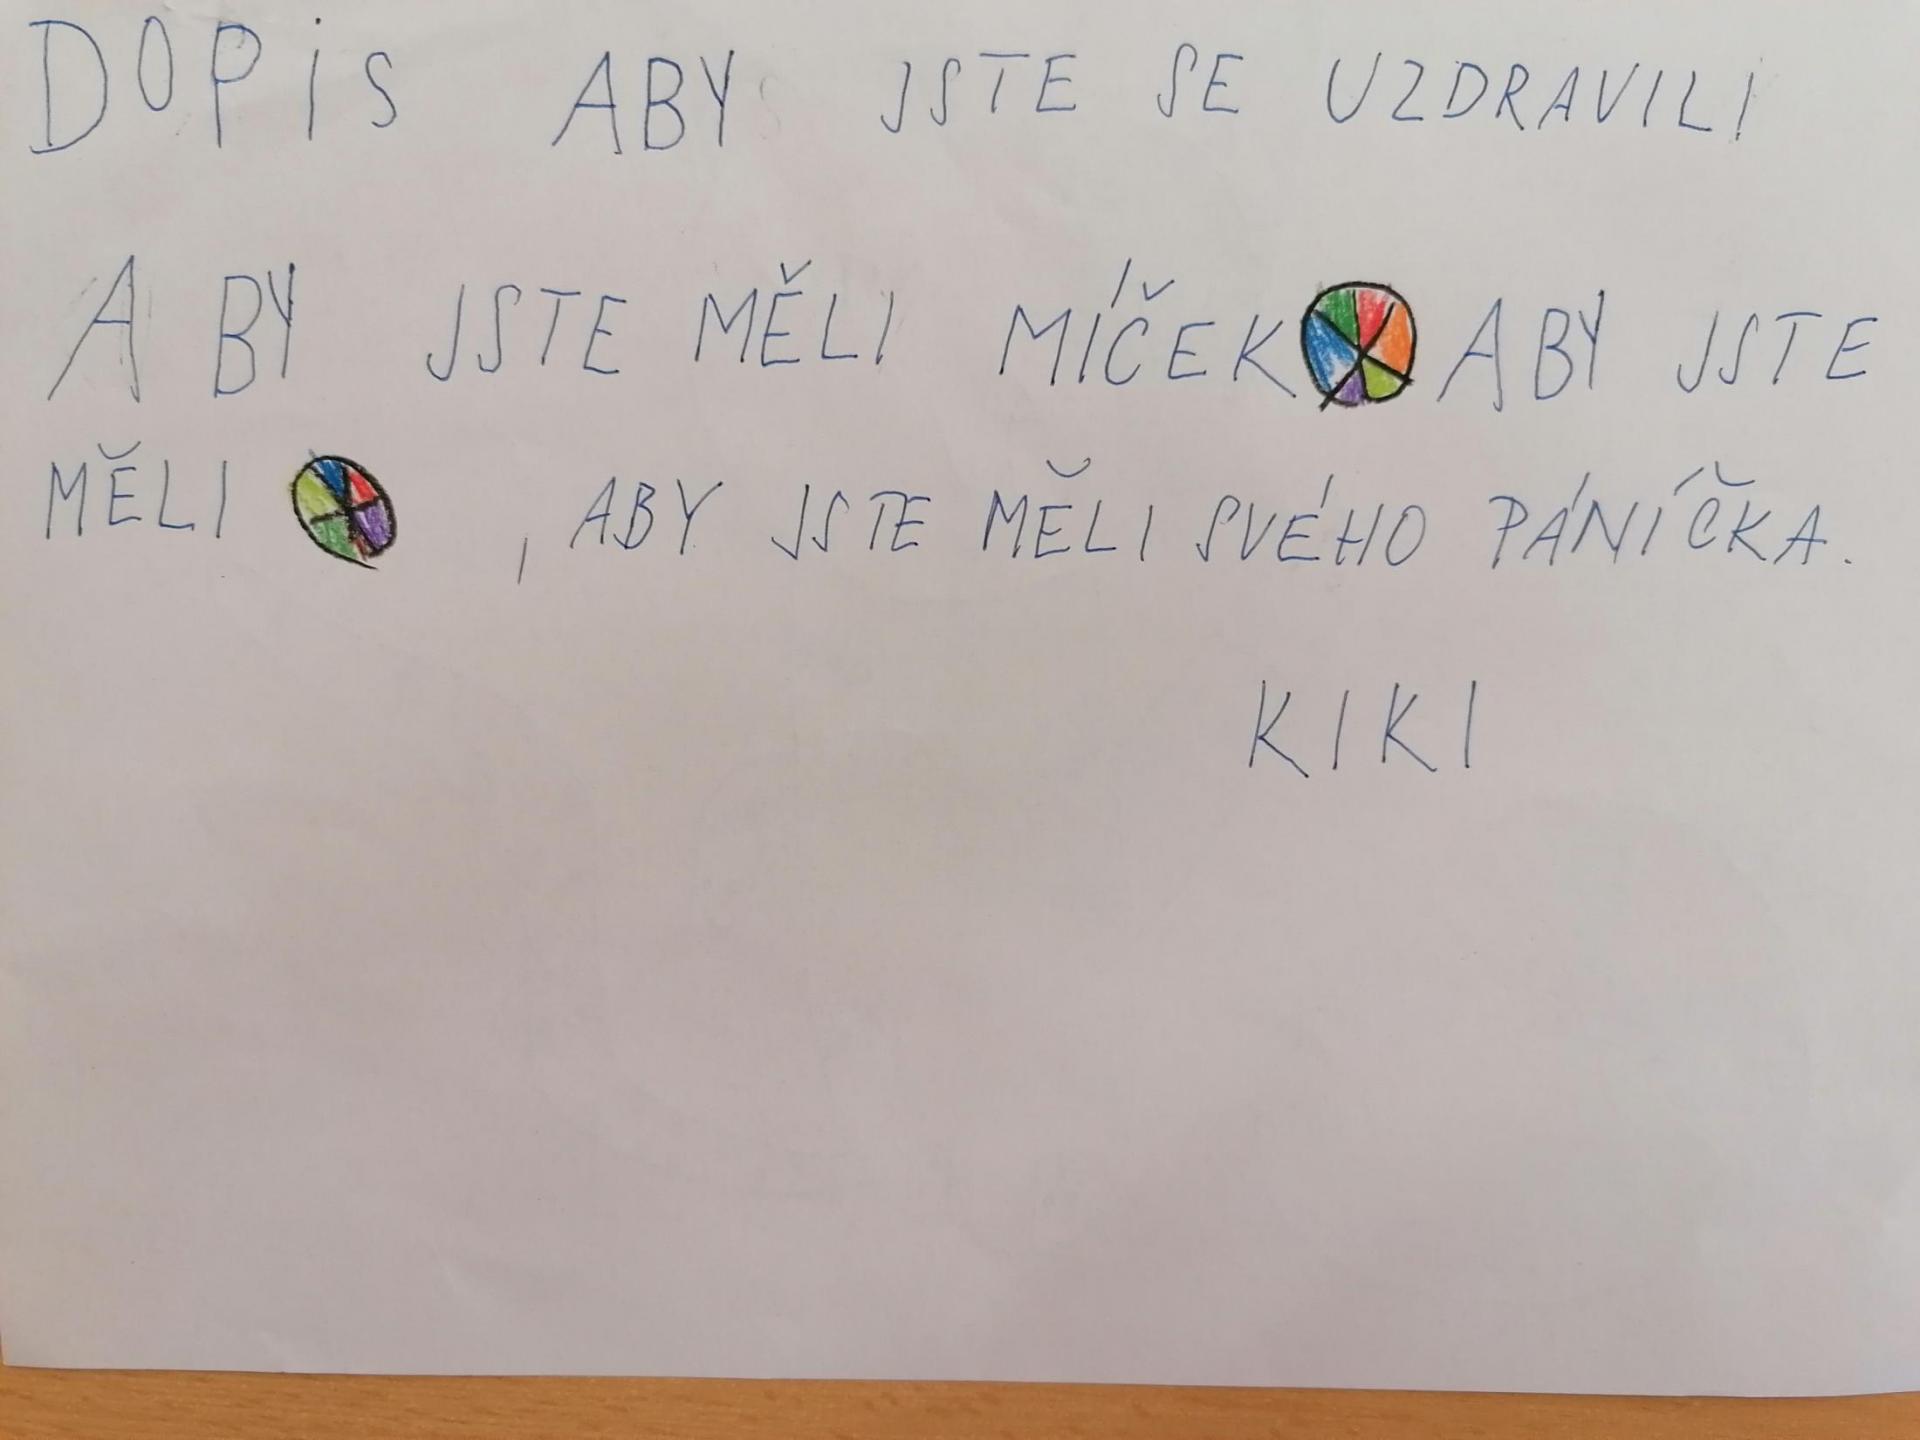 DOPiS ABY JSTE SE UZDRAVILI
ABY JSTE MĚLI MÍČEK ABY JSTE
MĚLI , ABY JSTE MĚLI SVÉHO PÁNÍČKA.
KIKI